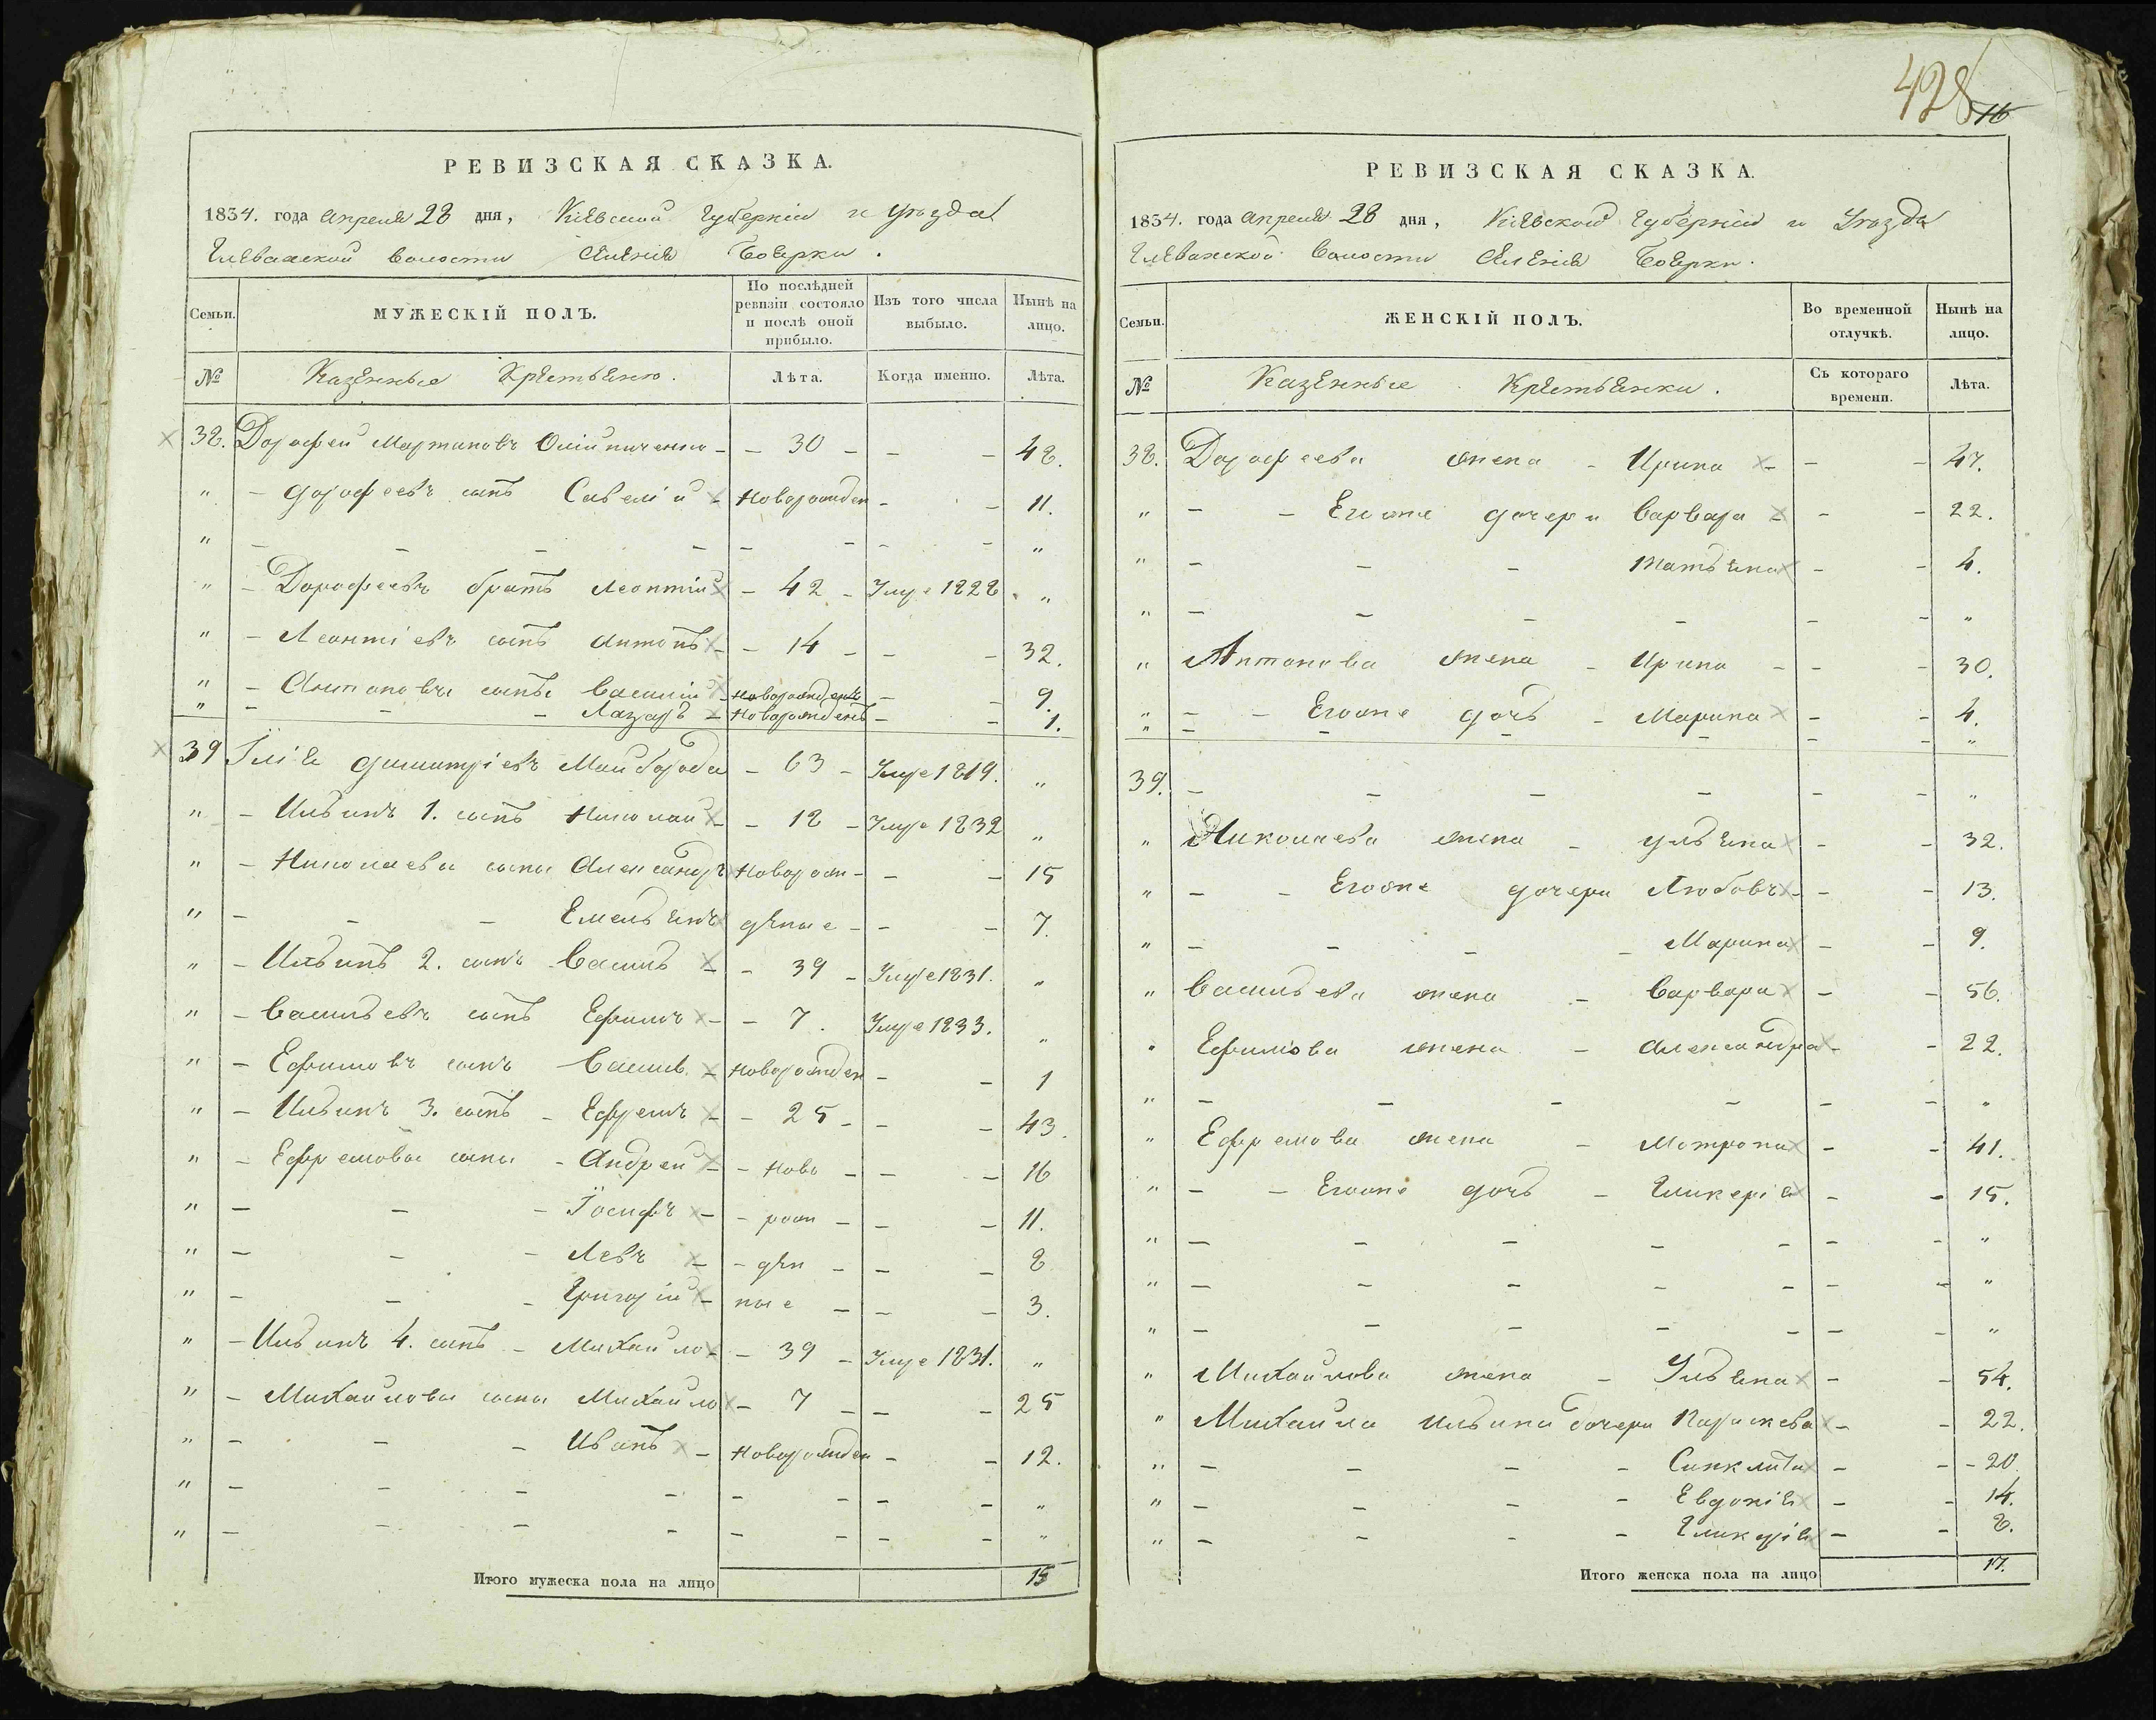 428
16
РЕВИЗСКАЯ СКАЗКА.
1834. года апреля 28 дня, Кіевской Губерніи и уѣзда
Глевахской волости Селенія Боярки.
Семьи.
МУЖЕСКІЙ ПОЛЪ.
По послѣдней ревизіи состояло и послѣ оной прибыло.
Изъ того числа выбыло.
Нынѣ на лицо.
№ Казенные Крестьяне. Лѣта. Когда именно. Лѣта.
38. Дорофей Мартиновъ - 30 - - - 48.
" - Дорофеевъ сынъ Савелій - Новорожден - - 11.
" - - - - - - - - "
" - Дорофеевъ братъ Леонтій - 42 - Умре 1828. "
" - Леонтіевъ сынъ Антонъ - - 14 - - - 32.
" - Антоновы сыны Василій - новорожденъ - - 9.
" - - - Лазарь - новорожденъ - - 1.
39 Ілія Димитріевъ Майборода - 63 - Умре 1819. "
" - Ильинъ 1. сынъ Николай - - 18 - Умре 1832 "
" - Николаевы сыны Александръ Новорож - - - 15
" - - - Емельянъ дѣные - - - 7.
" - Ильинъ 2. сынъ Василь - - 39 - Умре 1831. "
" - Васильевъ сынъ Ефимъ - - 7. Умре 1833. "
" - Ефимовъ сынъ Василь - Новорожден - - 1
" - Ильинъ 3. сынъ - Ефремъ - - 25 - - - 43.
" - Ефремовы сыны - Андрей - - Ново - - - 16
" - - - Іосифъ - - рож - - - 11.
" - - - Левъ - - дѣн - - - 8
" - - - Григорій - ные - - - 3.
" - Ильинъ 4. сынъ - Михайло - - 39 - Умре 1831. "
" - Михайловы сыны Михайло - 7 - - - 25
" - - - Иванъ - Новорожден - - 12.
" - - - - - - - - "
" - - - - - - - - "
Итого мужеска пола на лицо 15
РЕВИЗСКАЯ СКАЗКА.
1834. года апреля 28 дня, Кіевской Губерніи и Уѣзда
Глевахской волости Селенія Боярки.
Семьи.
ЖЕНСКІЙ ПОЛЪ.
Во временной отлучкѣ.
Нынѣ на лицо.
№ Казенные Крестьянки. Съ котораго времени. Лѣта.
38. Дорофеева жена - Ирина - - - 47.
" - - Егоже дочери Варвара - - - 22.
" - - - Татьяна - - 4.
" - - - - - - "
" Антонова жена - Ирина - - - 30.
" - - Егоже дочь - Марина - - 4.
" - - - - - - "
39. - - - - - - "
" Николаева жена - Ульяна - - 32.
" - - Егоже дочери Любовъ - - - 13.
" - - - - Марина - - 9.
" Васильева жена - Варвара - - 56.
" Ефимова жена - Александра - - 22.
" - - - - - - "
" Ефремова жена - Мотрона - - 41.
" - - Егоже дочь - Гликерія - - 15.
" - - - - - - - "
" - - - - - - - "
" - - - - - - - "
" Михайлова жена - Ульяна - - 54.
" Михайла Ильина дочери Параскева - - 22.
" - - - - Синклита - - - 20.
" - - - - Евдокія - - 14.
" - - - - Гликерія - - 8.
Итого женска пола на лицо 17.